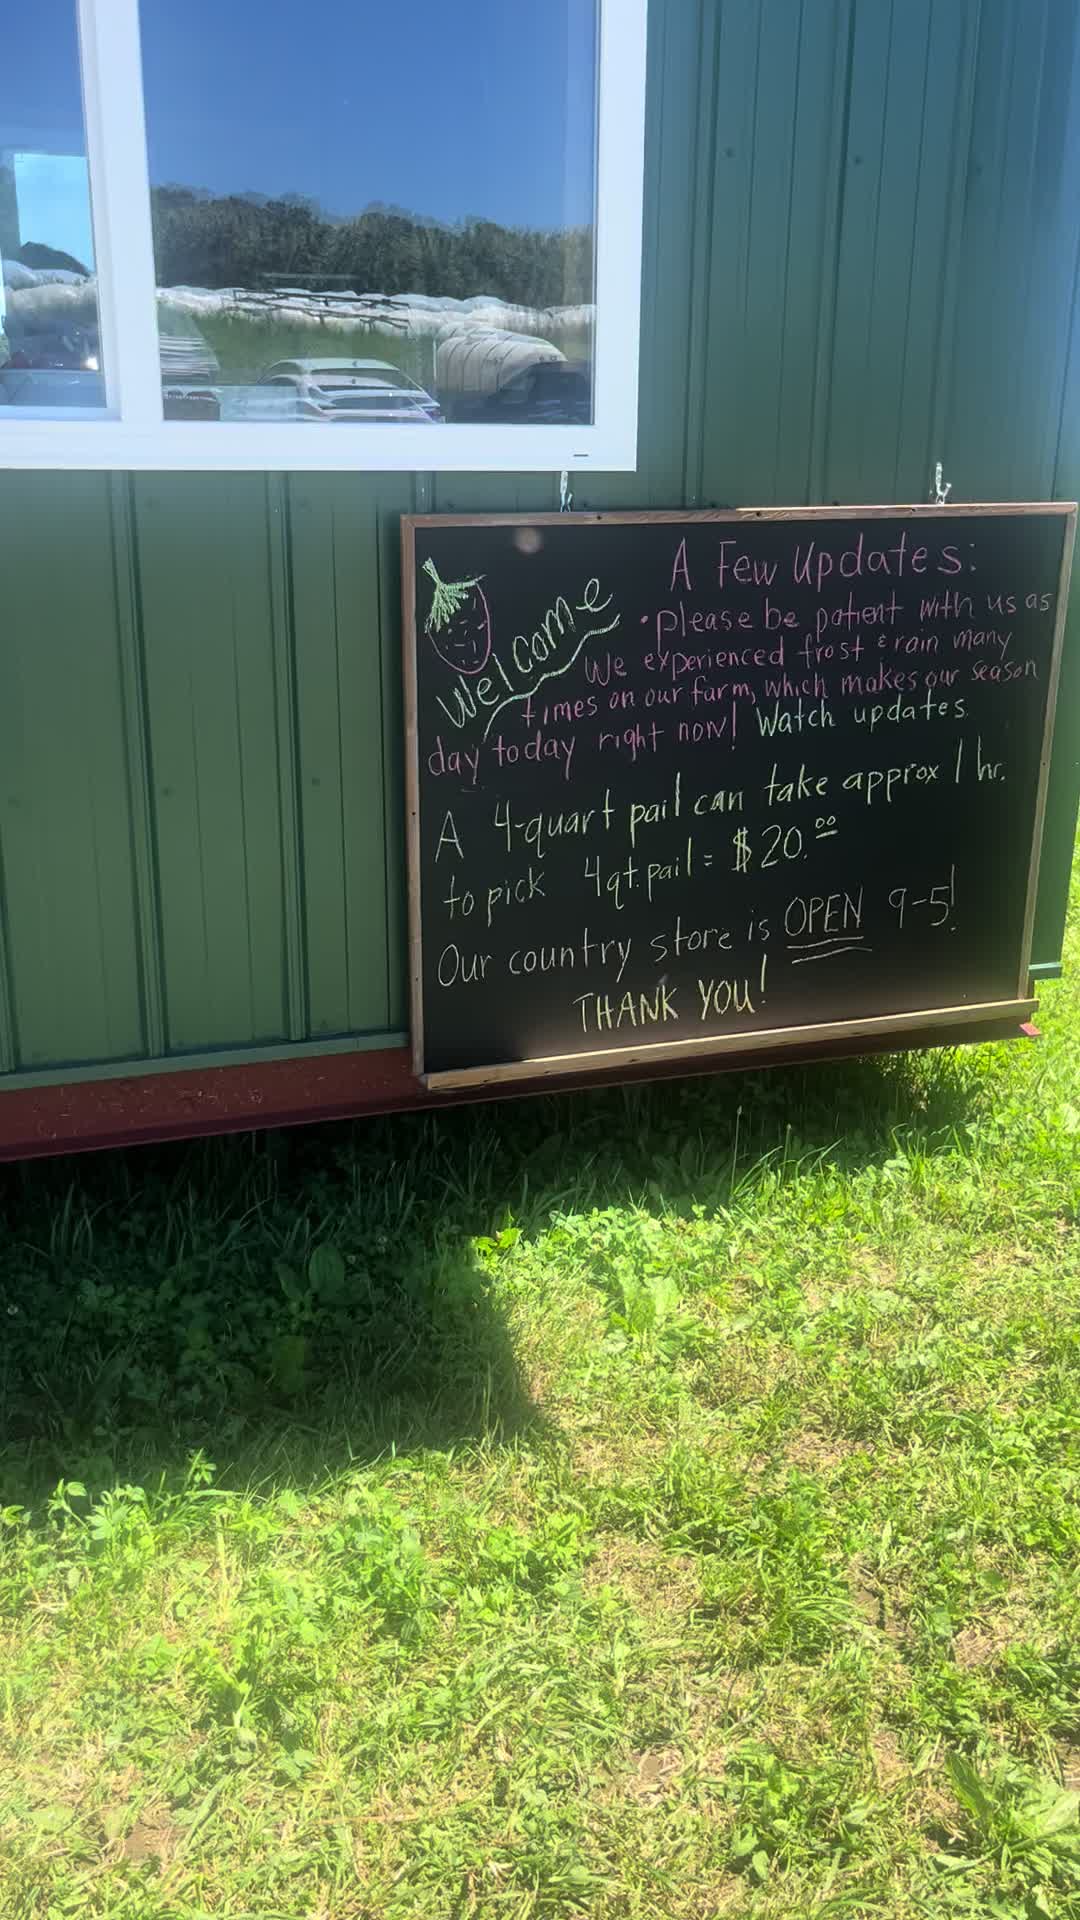 Welcome
A Few Updates:
• Please be patient with us as
We experienced frost & rain many
times on our farm, which makes our season
day today right now! Watch updates.
A 4-quart pail can take approx 1 hr.
to pick 4qt. pail = $20.00
Our country store is OPEN 9-5!
THANK YOU!